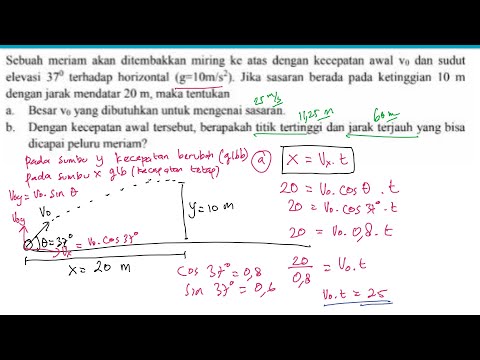 Sebuah meriam akan ditembakkan miring ke atas dengan kecepatan awal v₀ dan sudut
elevasi 37⁰ terhadap horizontal (g=10m/s²). Jika sasaran berada pada ketinggian 10 m
dengan jarak mendatar 20 m, maka tentukan
25 m/s
a. Besar v₀ yang dibutuhkan untuk mengenai sasaran.
11,25 m
60 m
b. Dengan kecepatan awal tersebut, berapakah titik tertinggi dan jarak terjauh yang bisa
dicapai peluru meriam?
pada sumbu y kecepatan berubah (glbb)
pada sumbu x glb (kecepatan tetap)
Voy = Vo. sin θ
Voy
Vo
θ=37°
Vx = Vo. cos 37°
y=10 m
x = 20 m
cos 37° = 0,8
sin 37° = 0,6
a
x = Vx. t
20 = Vo. cos θ . t
20 = Vo. cos 37° . t
20 = Vo. 0,8 . t
20/0,8 = Vo. t
Vo. t = 25